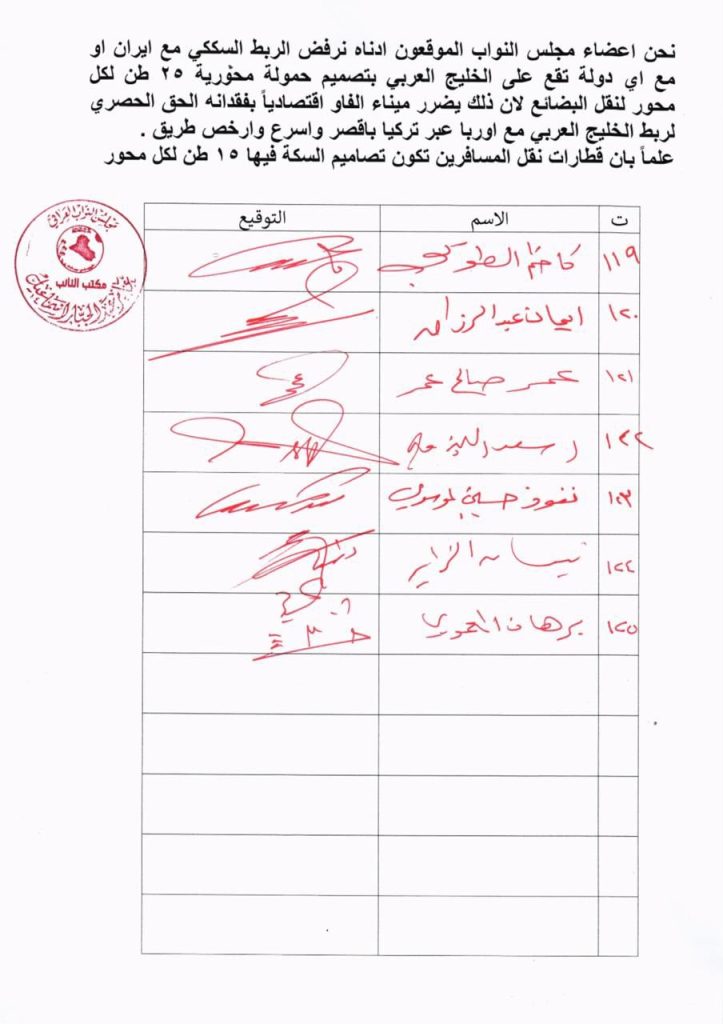 نحن اعضاء مجلس النواب الموقعون ادناه نرفض الربط السككي مع ايران او
مع اي دولة تقع على الخليج العربي بتصميم حمولة محوْرية ٢٥ طن لكل
محور لنقل البضائع لان ذلك يضرر ميناء الفاو اقتصادياً بفقدانه الحق الحصري
لربط الخليج العربي مع اوربا عبر تركيا باقصر واسرع وارخص طريق .
علماً بان قطارات نقل المسافرين تكون تصاميم السكة فيها ١٥ طن لكل محور
مجلس النواب العراقي
مكتب النائب
عبد الجبار
ت الاسم التوقيع
١١٩ كاظم الطوكي
١٢٠ ايمان عبد الرزاق
١٢١ عمر صالح عمر
١٢٢
١٢٣ نفوذ حسين الموسوي
١٢٤ نيسان الزاير
١٢٥ برهان